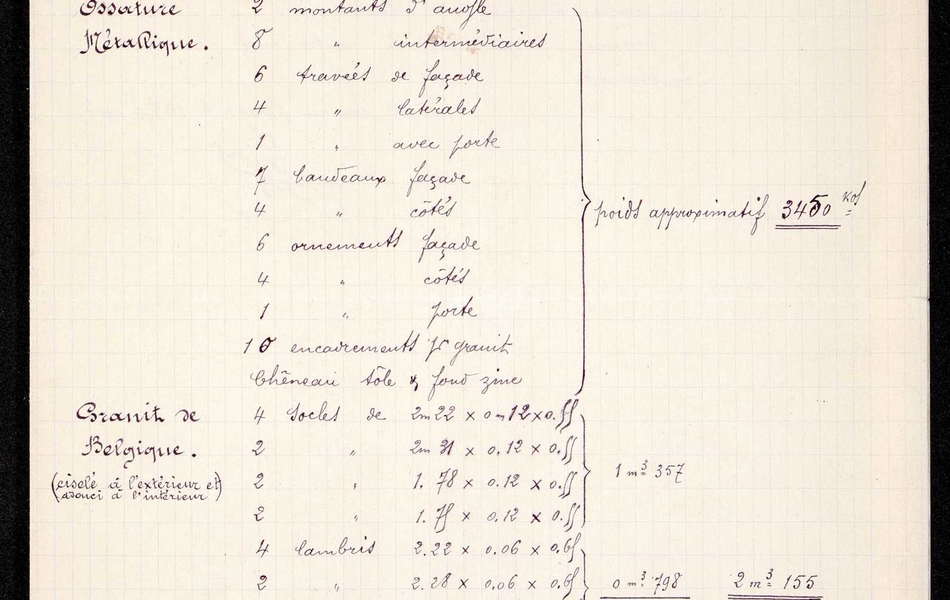 Ossature 2 montants d'angle
Métallique. 8 " intermédiaires
6 travées de façade
4 " latérales
1 " avec porte
7 bandeaux façade
4 " côtés
poids approximatif 3450 kos
6 ornements façade
4 " côtés
1 " porte
10 encadrements pr granit
Chêneau tôle & fond zinc
Granit de 4 Socles de 2m22 x 0m12 x 0.55
Belgique. 2 " 2m31 x 0.12 x 0.55
1 m3 357
(ciselé à l'extérieur et 2 " 1.78 x 0.12 x 0.55
adouci à l'intérieur) 2 " 1.75 x 0.12 x 0.55
4 lambris 2.22 x 0.06 x 0.65
2 " 2.28 x 0.06 x 0.65 0 m3 798 2 m3 155